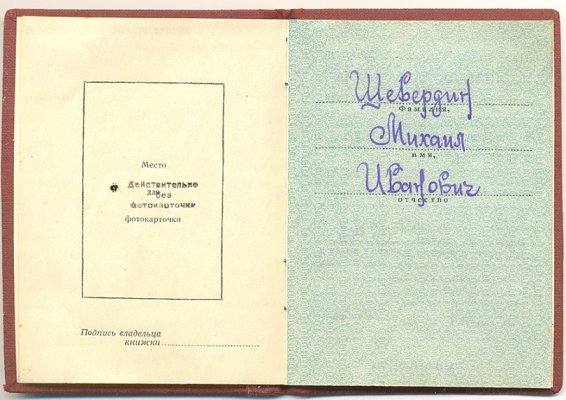 Место
Действительно
для
без
фотокарточки
фотокарточки
Подпись владельца
книжки
Шевердин
Фамилия,
Михаил
имя,
Иванович
отчество